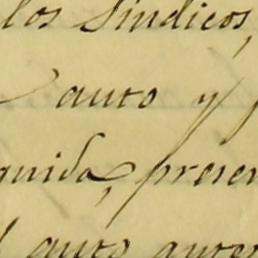 los Síndicos,
auto y
guida, presen
auto anter